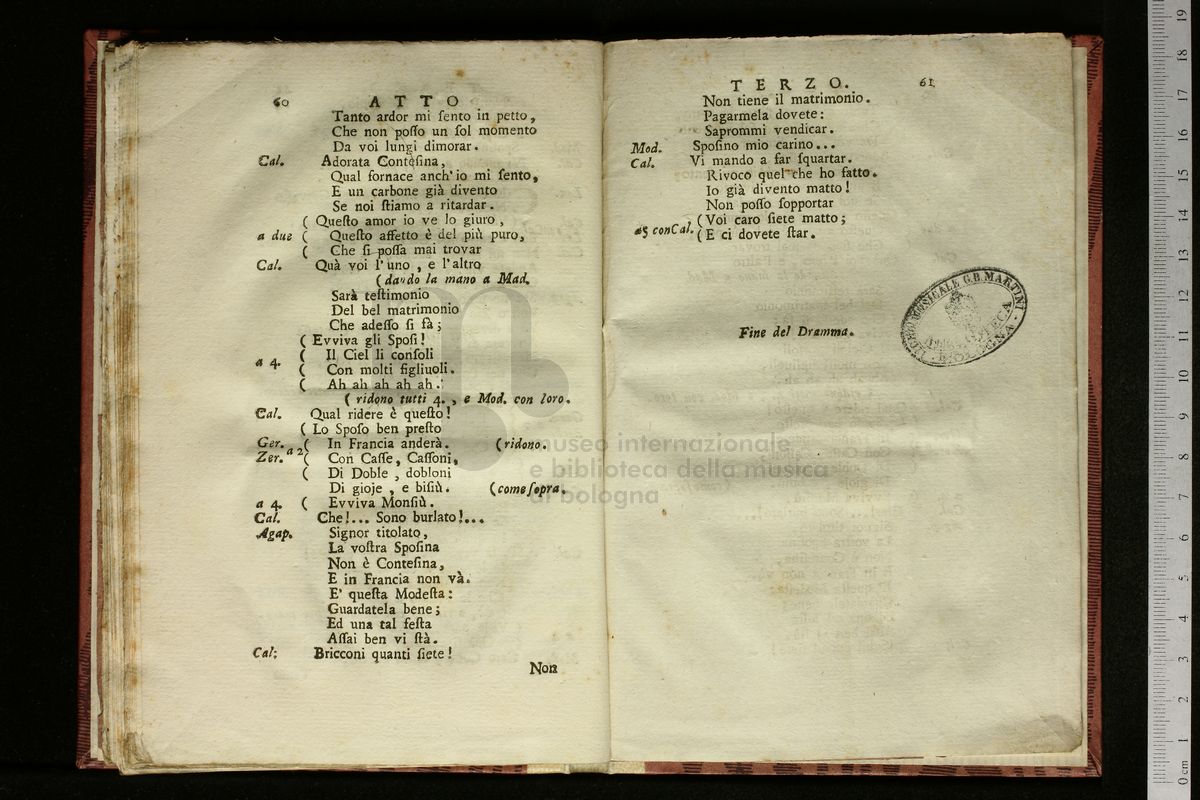 60 ATTO
Tanto ardor mi ſento in petto,
Che non poſſo un ſol momento
Da voi lungi dimorar.
Cal. Adorata Conteſina,
Qual fornace anch'io mi ſento,
E un carbone già divento
Se noi ſtiamo a ritardar.
( Queſto amor io ve lo giuro,
a due ( Queſto affetto è del più puro,
( Che ſi poſſa mai trovar
Cal. Quà voi l'uno, e l'altro
(dando la mano a Mad.
Sarà teſtimonio
Del bel matrimonio
Che adeſſo ſi fà;
( Evviva gli Spoſi!
a 4. ( Il Ciel li conſoli
( Con molti figliuoli.
( Ah ah ah ah ah.
( ridono tutti 4., e Mod. con loro.
Cal. Qual ridere è queſto!
( Lo Spoſo ben preſto
Ger. a 2 ( In Francia anderà. (ridono.
Zer. ( Con Caſſe, Caſſoni,
( Di Doble, dobloni
Di gioje, e biſiù. (come ſopra.
a 4. ( Evviva Monſiù.
Cal. Che!... Sono burlato!...
Agap. Signor titolato,
La voſtra Spoſina
Non è Conteſina,
E in Francia non và.
E' queſta Modeſta:
Guardatela bene;
Ed una tal feſta
Aſſai ben vi ſtà.
Cal: Bricconi quanti ſiete!
Non
TERZO. 61
Non tiene il matrimonio.
Pagarmela dovete:
Saprommi vendicar.
Mod. Spoſino mio carino...
Cal. Vi mando a far ſquartar.
Rivoco quel che ho fatto.
Io già divento matto!
Non poſſo ſopportar
( Voi caro ſiete matto;
a 5 con Cal. ( E ci dovete ſtar.
Fine del Dramma.
LICEO MUSICALE G.B. MARTINI
BIBLIOTECA
BOLOGNA
museo internazionale
e biblioteca della musica
di bologna
0 cm 1 2 3 4 5 6 7 8 9 10 11 12 13 14 15 16 17 18 19